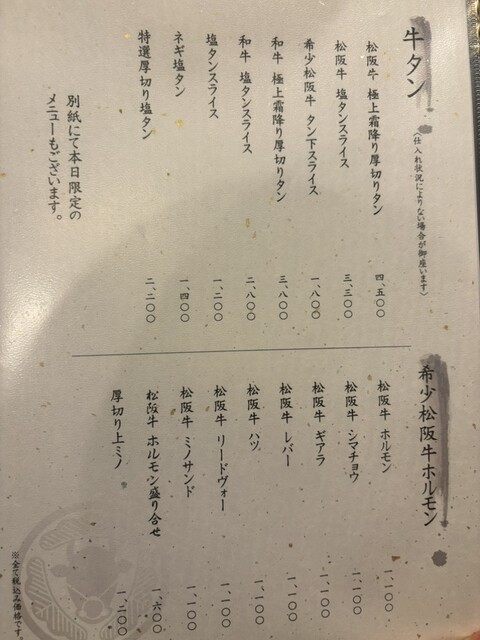 牛タン
（仕入れ状況によりない場合が御座います）
松阪牛 極上霜降り厚切りタン 四、五〇〇
松阪牛 塩タンスライス 三、三〇〇
希少松阪牛 タン下スライス 一、八〇〇
和牛 極上霜降り厚切りタン 三、八〇〇
和牛 塩タンスライス 二、八〇〇
塩タンスライス 一、二〇〇
ネギ塩タン 一、四〇〇
特選厚切り塩タン 二、二〇〇
別紙にて本日限定の
メニューもございます。
希少松阪牛ホルモン
松阪牛 ホルモン 一、一〇〇
松阪牛 シマチョウ 一、一〇〇
松阪牛 ギアラ 一、一〇〇
松阪牛 レバー 一、一〇〇
松阪牛 ハツ 一、一〇〇
松阪牛 リードヴォー 一、一〇〇
松阪牛 ミノサンド 一、一〇〇
松阪牛 ホルモン盛り合せ 一、六〇〇
厚切り上ミノ 一、二〇〇
※全て税込み価格です。